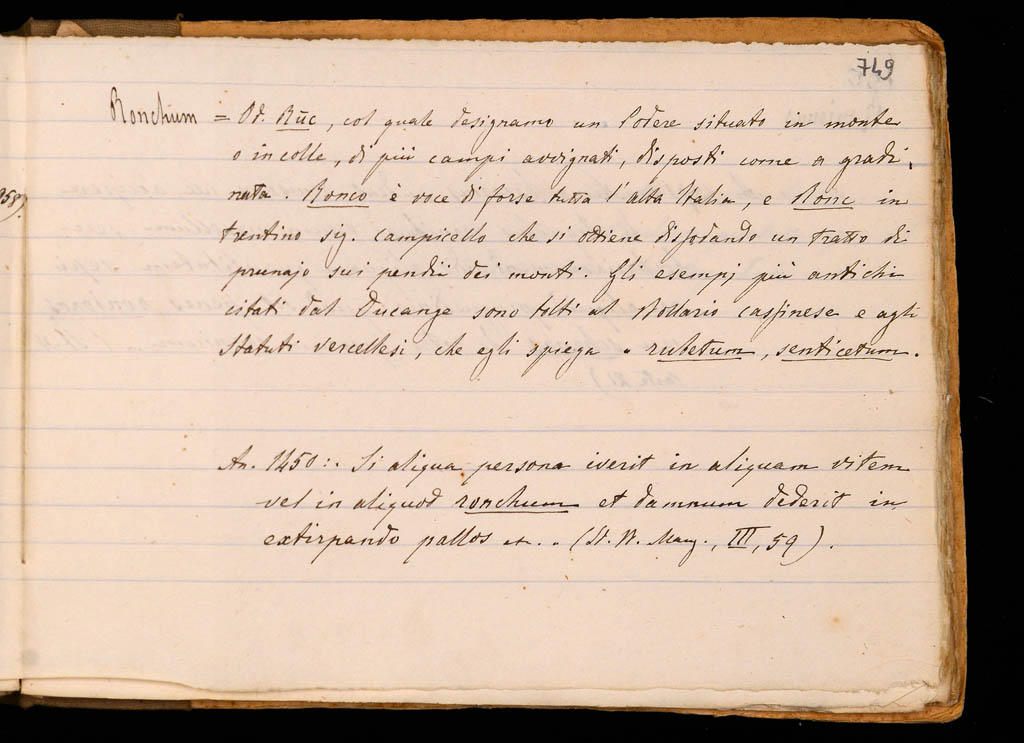 749
Ronchum = Od. Rūc, col quale designamo un Podere situato in monte
o in colle, di più campi avvignati, disposti come a gradi,
nata. Ronco è voce di forse tutta l'alta Italia, e Ronc in
trentino sig. campicello che si ottiene dissodando un tratto di
prunajo sui pendii dei monti. Gli esempj più antichi
citati dal Ducange sono tolti al Bollario cassinese e agli
Statuti vercellesi, che egli spiega " rubetum, senticetum.
An. 1450: Si aliqua persona iverit in aliquam vitem
vel in aliquod ronchum et damnum dederit in
extirpando pallos et. " (St. V. Mang., III, 59).